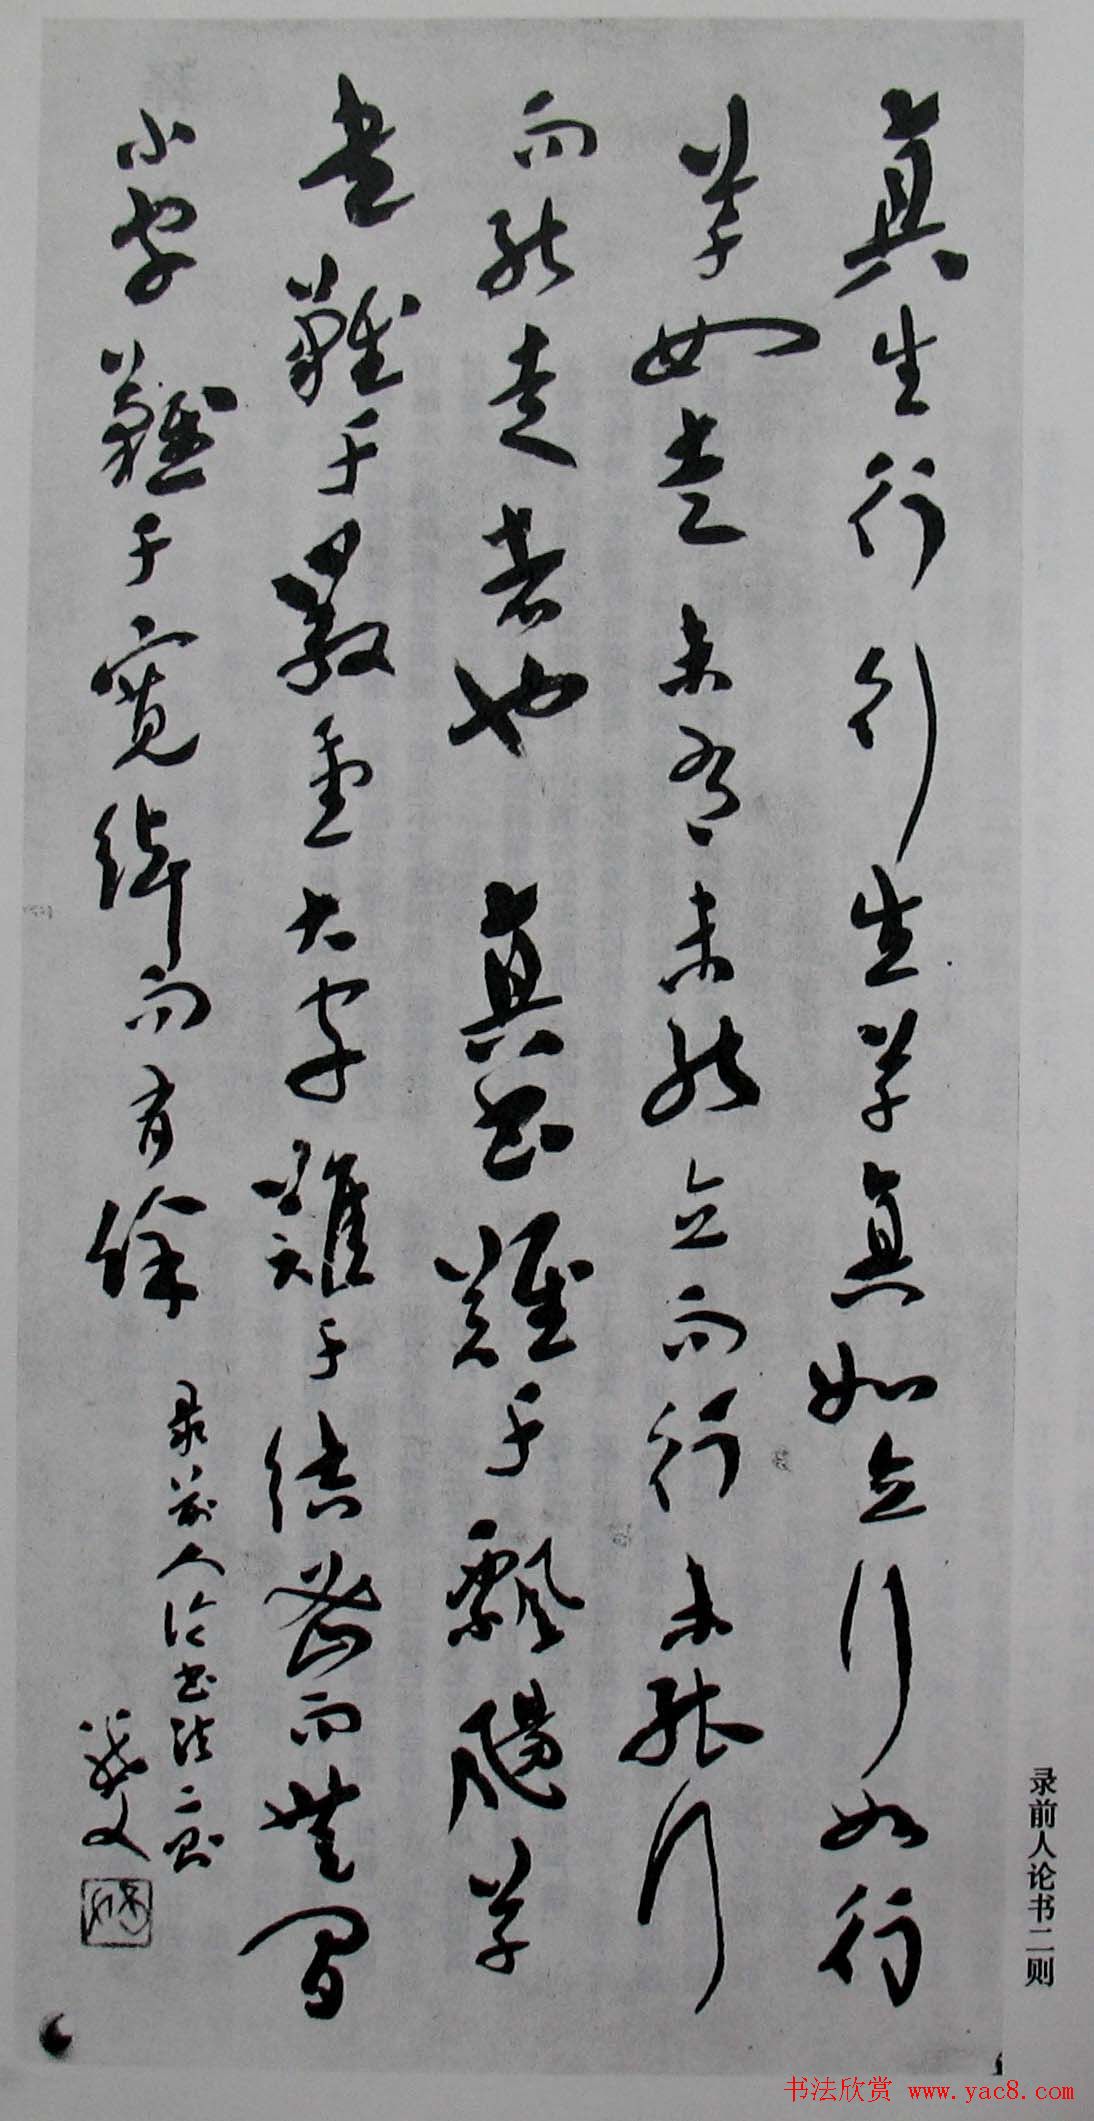 真生行行生草真如立行如行
草如走未有未能立而行未能行
而能走者也真書難于飄颺草
書難于嚴重大字難于結密而無間
小字難于寬綽而有餘
录前人论书法二则
散之
录前人论书二则
书法欣赏 www.yac8.com